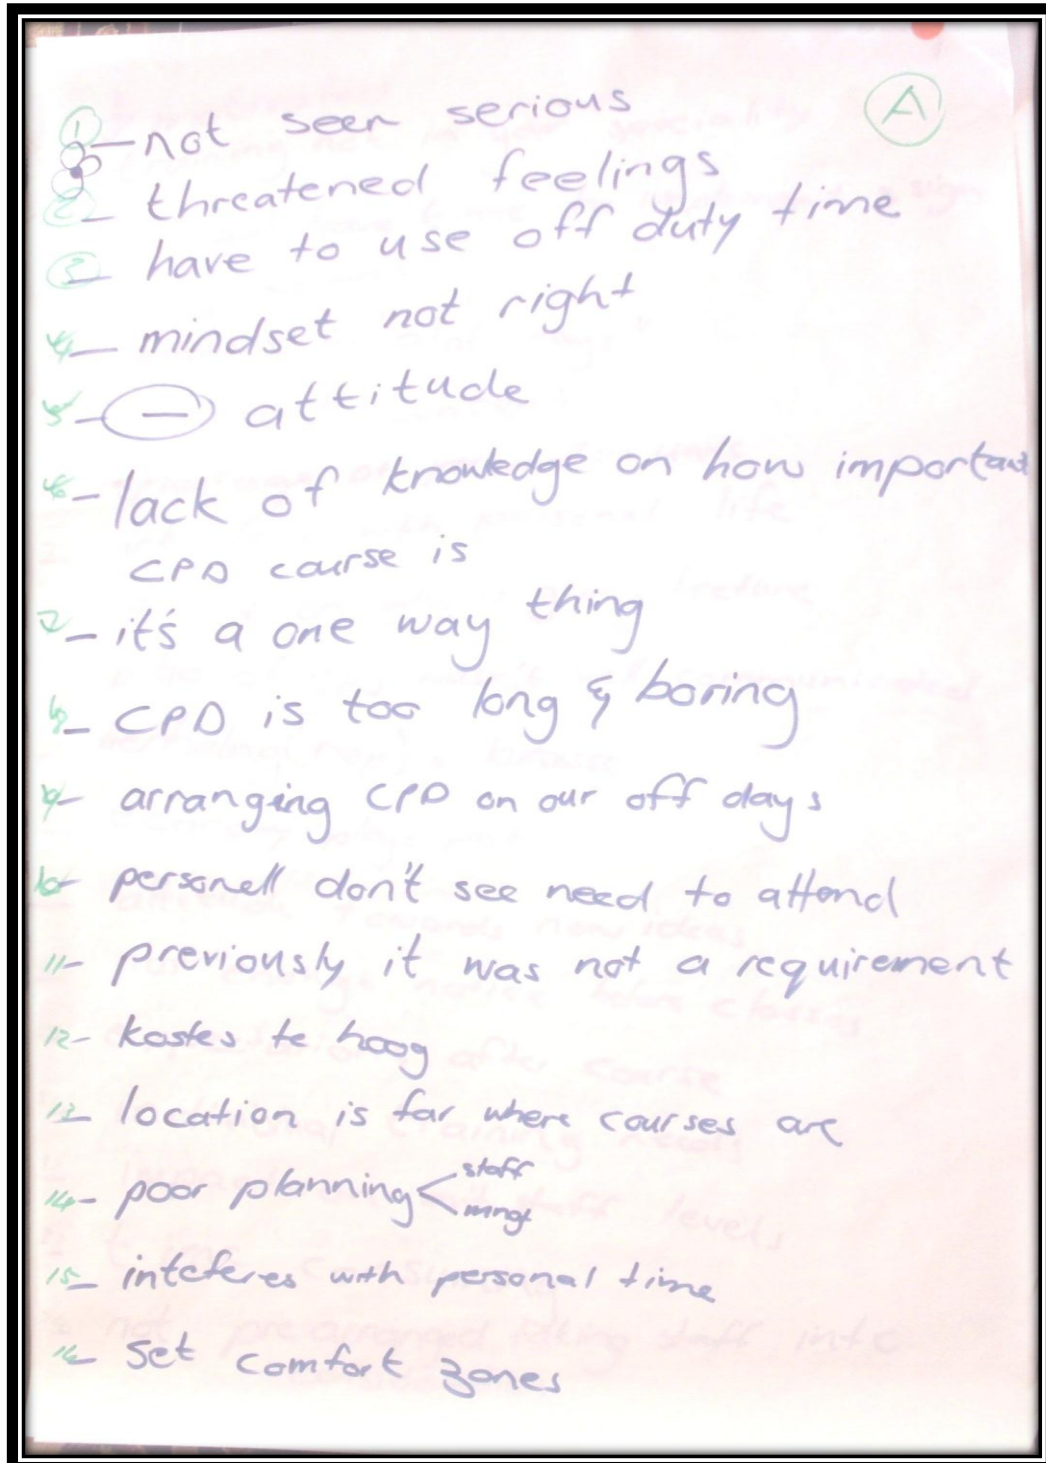 A
1 - not seen serious
2 - threatened feelings
3 - have to use off duty time
4 - mindset not right
5 - (-) attitude
6 - lack of knowledge on how important
CPD course is
7 - it's a one way thing
8 - CPD is too long & boring
9 - arranging CPD on our off days
10 - personell don't see need to attend
11 - previously it was not a requirement
12 - kostes te hoog
13 - location is far where courses are
14 - poor planning < staff
mngt
15 - inteferes with personal time
16 - set comfort zones